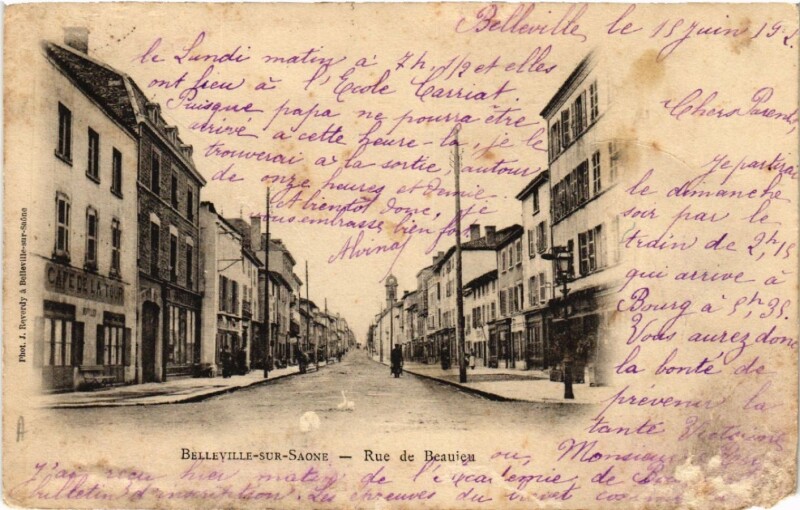 Belleville, le 15 Juin 19
Chers Parents,
Je partirai
le dimanche
soir par le
train de 2h,15
qui arrive à
Bourg à 5h,35.
Vous aurez donc
la bonté de
prévenir la
tante Victorine
ou, Monsieur
J'ai reçu hier matin de l'Académie de
bulletin d'inscription. Les épreuves du brevet
le Lundi matin à 7h,1/2 et elles
ont lieu à l'Ecole Carriat
Puisque papa ne pourra être
arrivé à cette heure-là, je le
trouverai à la sortie, autour
de onze heures et demie.
A bientôt donc, je
vous embrasse bien fort
Alvina
CAFÉ DE LA TOUR
Phot. J. Reverdy à Belleville-sur-Saône
BELLEVILLE-SUR-SAONE — Rue de Beaujeu